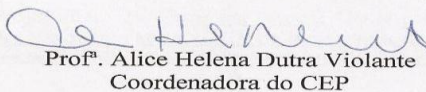 Profª. Alice Helena Dutra Violante
Coordenadora do CEP